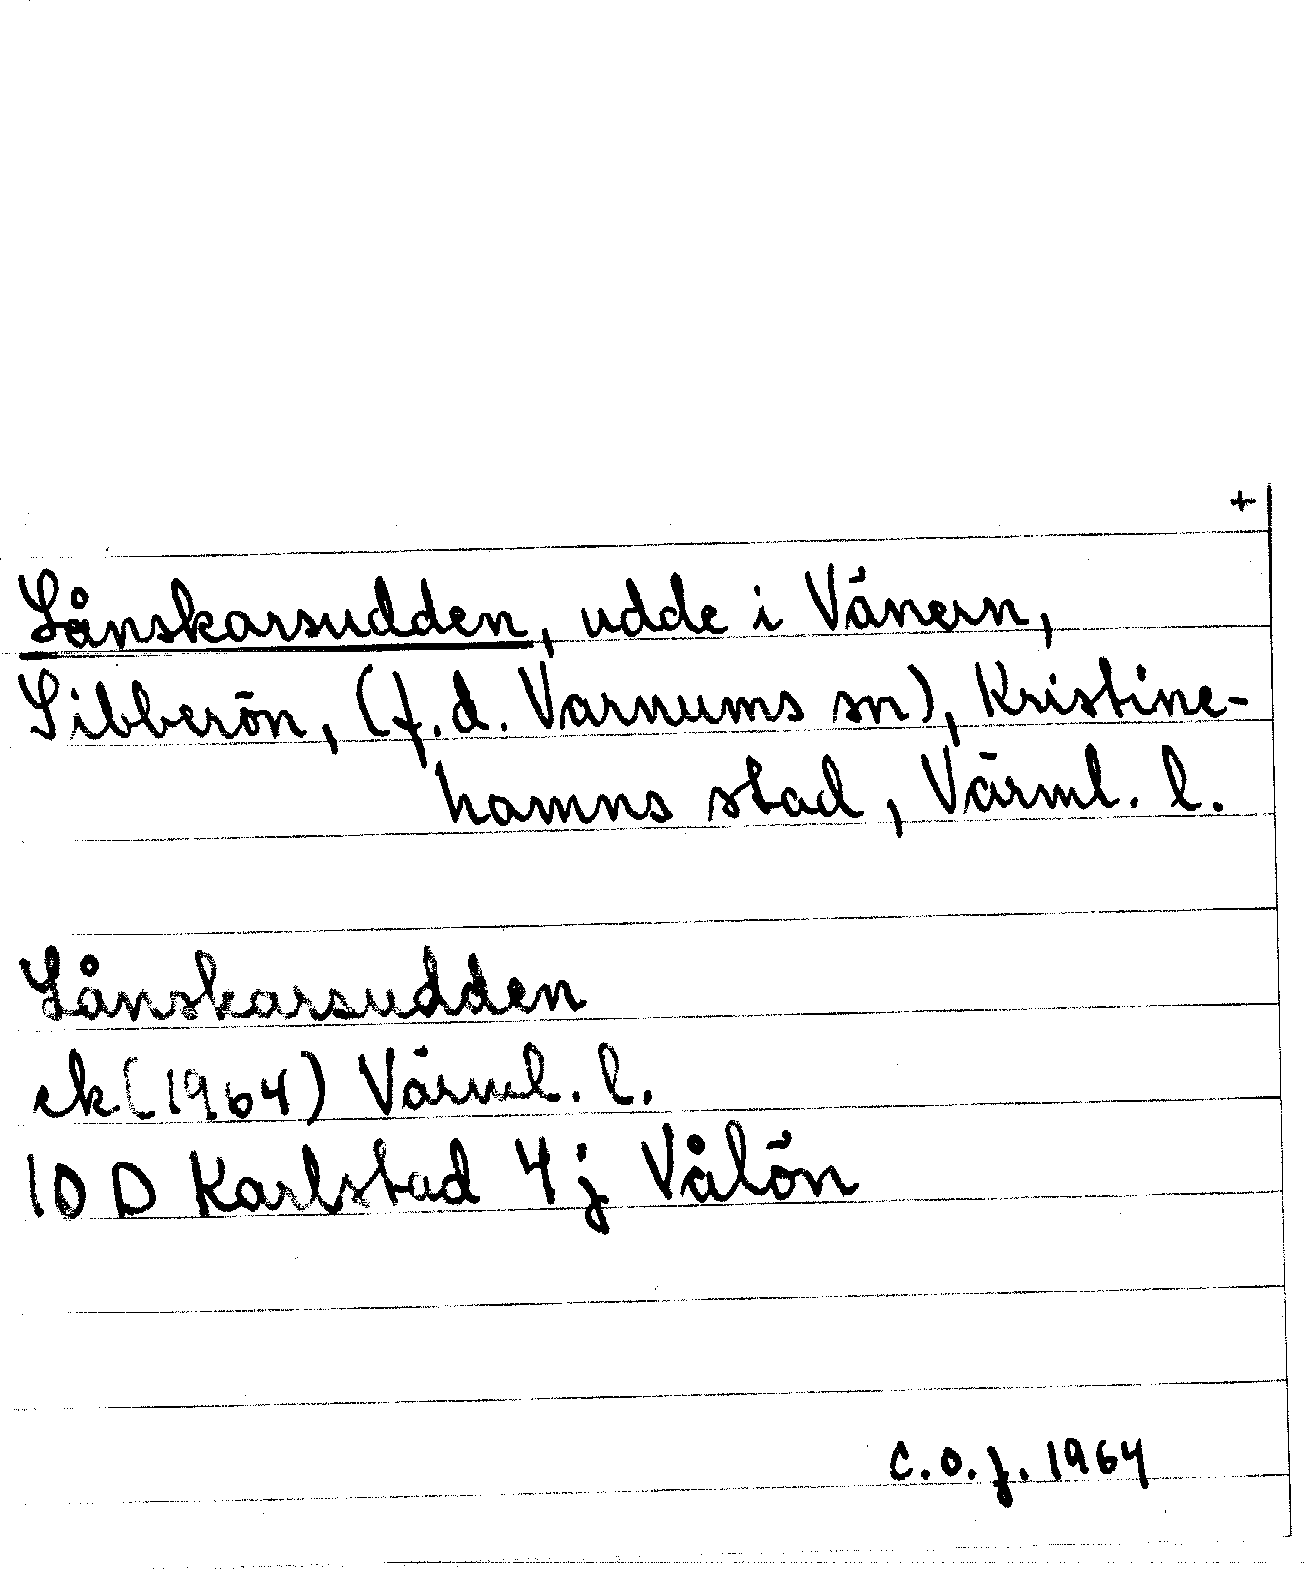 +
Lånskarsudden, udde i Vänern,
Sibberön, (f.d. Varnums sn), Kristine-
hamns stad, Värml. l.
Lånskarsudden
ek (1964) Värml. l.
10 D Karlstad 4j Vålön
C.O.J. 1964